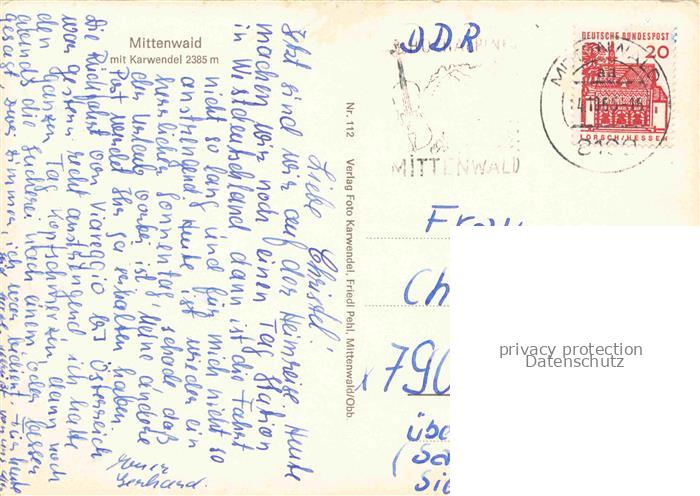 Mittenwald
mit Karwendel 2385 m
Liebe Christel!
Jetzt sind wir auf der Heimreise. Heute
machen wir noch einen Tag Station
in Westdeutschland dann ist die Fahrt
nicht so lang und für mich nicht so
anstrengend. Heute ist wieder ein
herrlicher Sonnentag, schade daß
der Urlaub vorbei ist. Meine andere
Post werdet Ihr ja erhalten haben.
Die Rückfahrt von Viareggio bis Österreich
war gestern recht anstrengend ich hatte
den ganzen Tag Kopfschmerzen, dann noch
abends die Sucherei nach einem oder besser
gesagt zwei Zimmer, ich war bedient. Für heute
Gerhard.
Nr. 112 Verlag Foto Karwendel, Friedl Pehl, Mittenwald/Obb.
DDR
MITTENWALD
DEUTSCHE BUNDESPOST
20
LORSCH/HESSEN
MITTENWALD
8102
Frau
Ch
790
übe
(Sa
Sie
privacy protection
Datenschutz